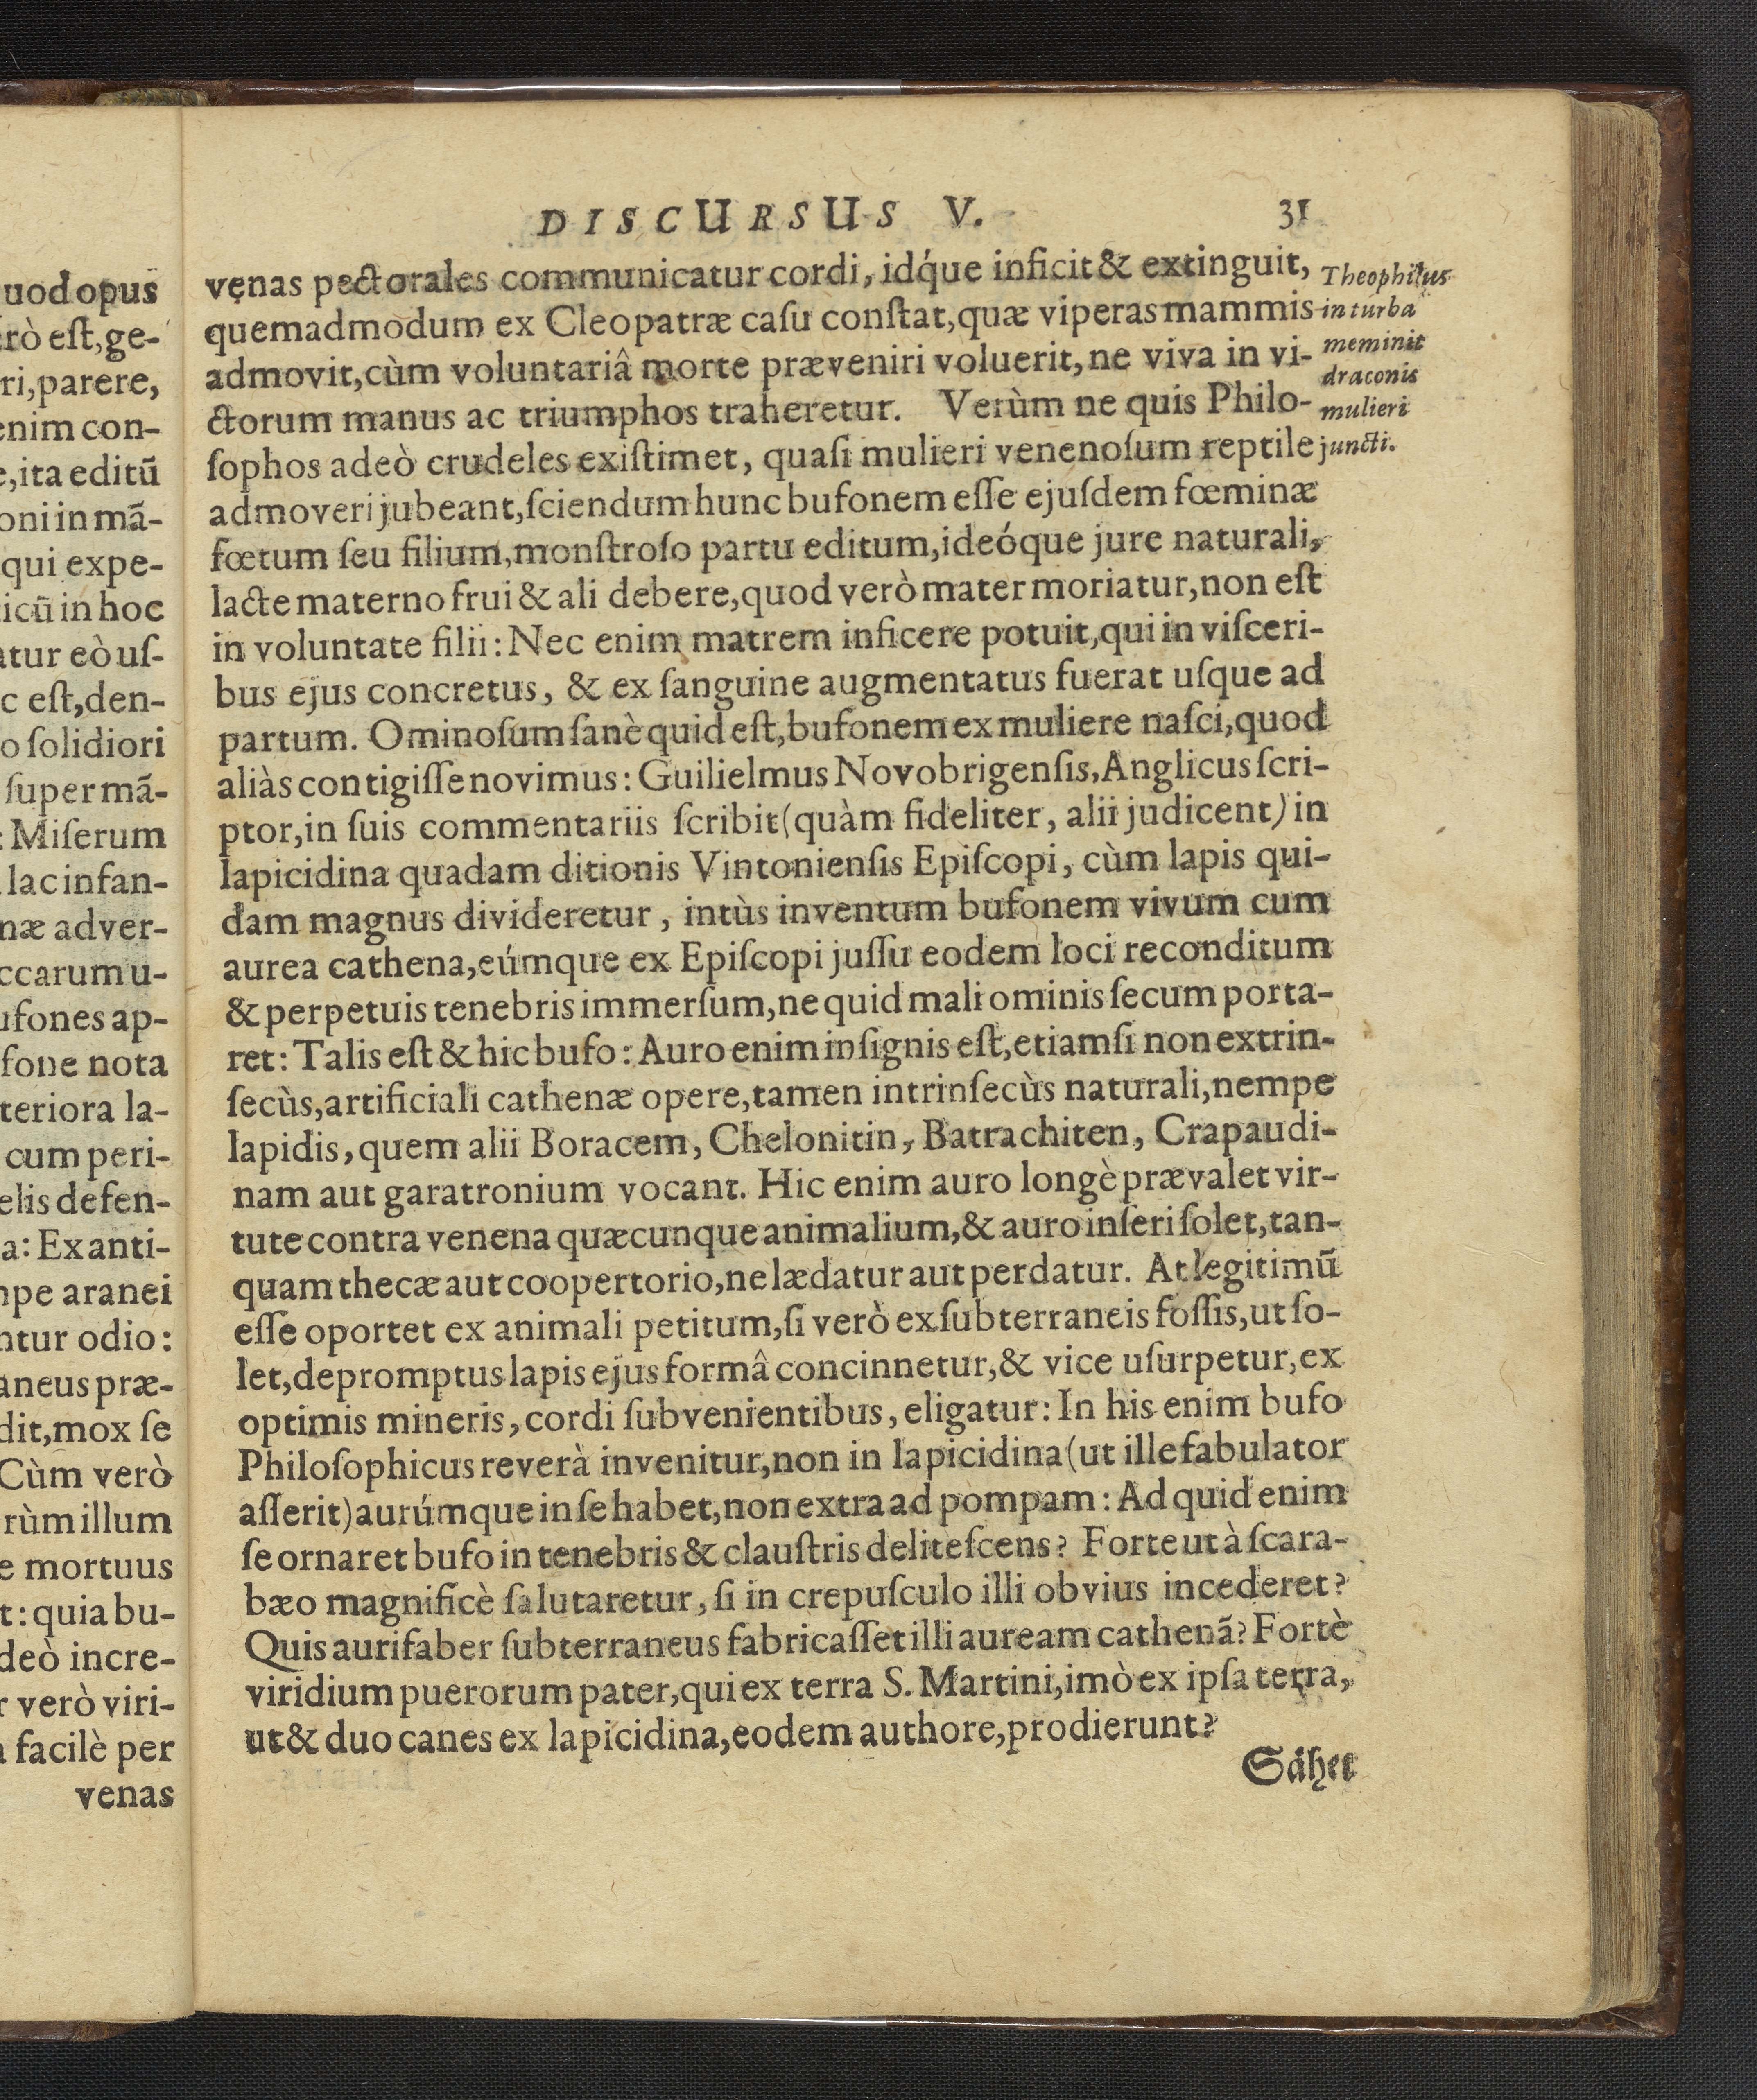 DISCURSUS V. 31
venas pectorales communicatur cordi, idq́ue inficit & extinguit,
quemadmodum ex Cleopatræ caſu conſtat, quæ viperas mammis
admovit, cùm voluntariâ morte præveniri voluerit, ne viva in vi-
ctorum manus ac triumphos traheretur. Verùm ne quis Philo-
ſophos adeò crudeles exiſtimet, quaſi mulieri venenoſum reptile
admoveri jubeant, ſciendum hunc bufonem eſſe ejuſdem fœminæ
fœtum ſeu filium, monſtroſo partu editum, ideóque jure naturali,
lacte materno frui & ali debere, quod verò mater moriatur, non eſt
in voluntate filii: Nec enim matrem inficere potuit, qui in viſceri-
bus ejus concretus, & ex ſanguine augmentatus fuerat uſque ad
partum. Ominoſum ſanè quid eſt, bufonem ex muliere naſci, quod
aliàs contigiſſe novimus: Guilielmus Novobrigenſis, Anglicus ſcri-
ptor, in ſuis commentariis ſcribit (quàm fideliter, alii judicent) in
lapicidina quadam ditionis Vintonienſis Epiſcopi, cùm lapis qui-
dam magnus divideretur, intùs inventum bufonem vivum cum
aurea cathena, eúmque ex Epiſcopi juſſu eodem loci reconditum
& perpetuis tenebris immerſum, ne quid mali ominis ſecum porta-
ret: Talis eſt & hic bufo: Auro enim inſignis eſt, etiamſi non extrin-
ſecùs, artificiali cathenæ opere, tamen intrinſecùs naturali, nempe
lapidis, quem alii Boracem, Chelonitin, Batrachiten, Crapaudi-
nam aut garatronium vocant. Hic enim auro longè prævalet vir-
tute contra venena quæcunque animalium, & auro inſeri ſolet, tan-
quam thecæ aut coopertorio, ne lædatur aut perdatur. At legitimũ
eſſe oportet ex animali petitum, ſi verò ex ſubterraneis foſſis, ut ſo-
let, depromptus lapis ejus formâ concinnetur, & vice uſurpetur, ex
optimis mineris, cordi ſubvenientibus, eligatur: In his enim bufo
Philoſophicus reverà invenitur, non in lapicidina (ut ille fabulator
aſſerit) aurúmque in ſe habet, non extra ad pompam: Ad quid enim
ſe ornaret bufo in tenebris & clauſtris deliteſcens? Forte ut à ſcara-
bæo magnificè ſalutaretur, ſi in crepuſculo illi obvius incederet?
Quis aurifaber ſubterraneus fabricaſſet illi auream cathenã? Fortè
viridium puerorum pater, qui ex terra S. Martini, imò ex ipſa terra,
ut & duo canes ex lapicidina, eodem authore, prodierunt?
Sähet
Theophilus
in turba
meminit
draconis
mulieri
juncti.
uod opus
rò eſt, ge-
ri, parere,
enim con-
e, ita editũ
oni in mã-
qui expe-
icũ in hoc
atur eò uſ-
c eſt, den-
o ſolidiori
ſuper mã-
: Miſerum
lac infan-
næ adver-
ccarum u-
ufones ap-
fone nota
teriora la-
cum peri-
elis defen-
a: Ex anti-
npe aranei
ntur odio:
aneus præ-
dit, mox ſe
Cùm verò
rùm illum
e mortuus
t: quia bu-
deò incre-
r verò viri-
facilè per
venas